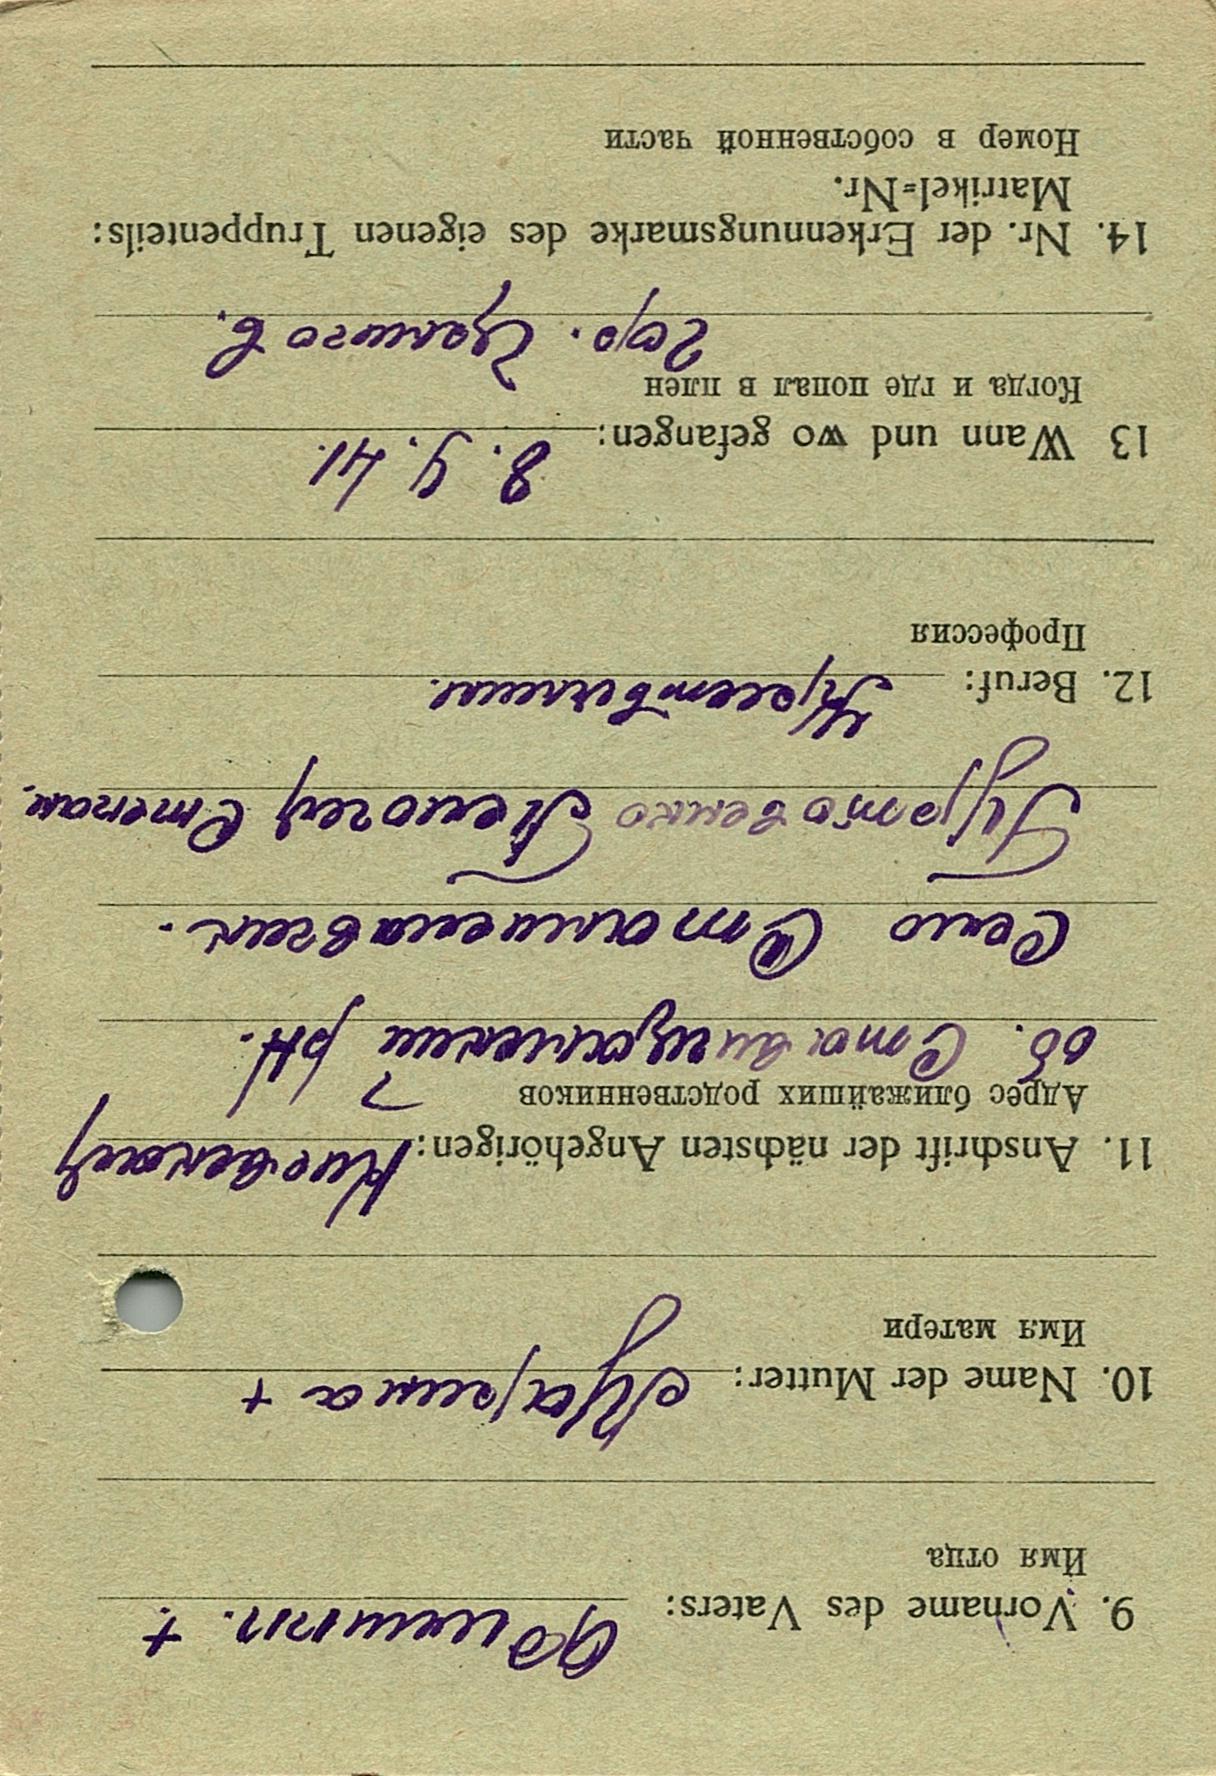 9. Vorname des Vaters: Филипп. +
Имя отца
10. Name der Mutter: Марина +
Имя матери
11. Anschrift der nächsten Angehörigen:
Адрес ближайших родственников
об. рн.
Село
Степан.
12. Beruf: Крестьянин.
Профессия
13 Wann und wo gefangen: 8. 9. 41.
Когда и где попал в плен
гор. Чернигов.
14. Nr. der Erkennungsmarke des eigenen Truppenteils:
Matrikel=Nr.
Номер в собственной части